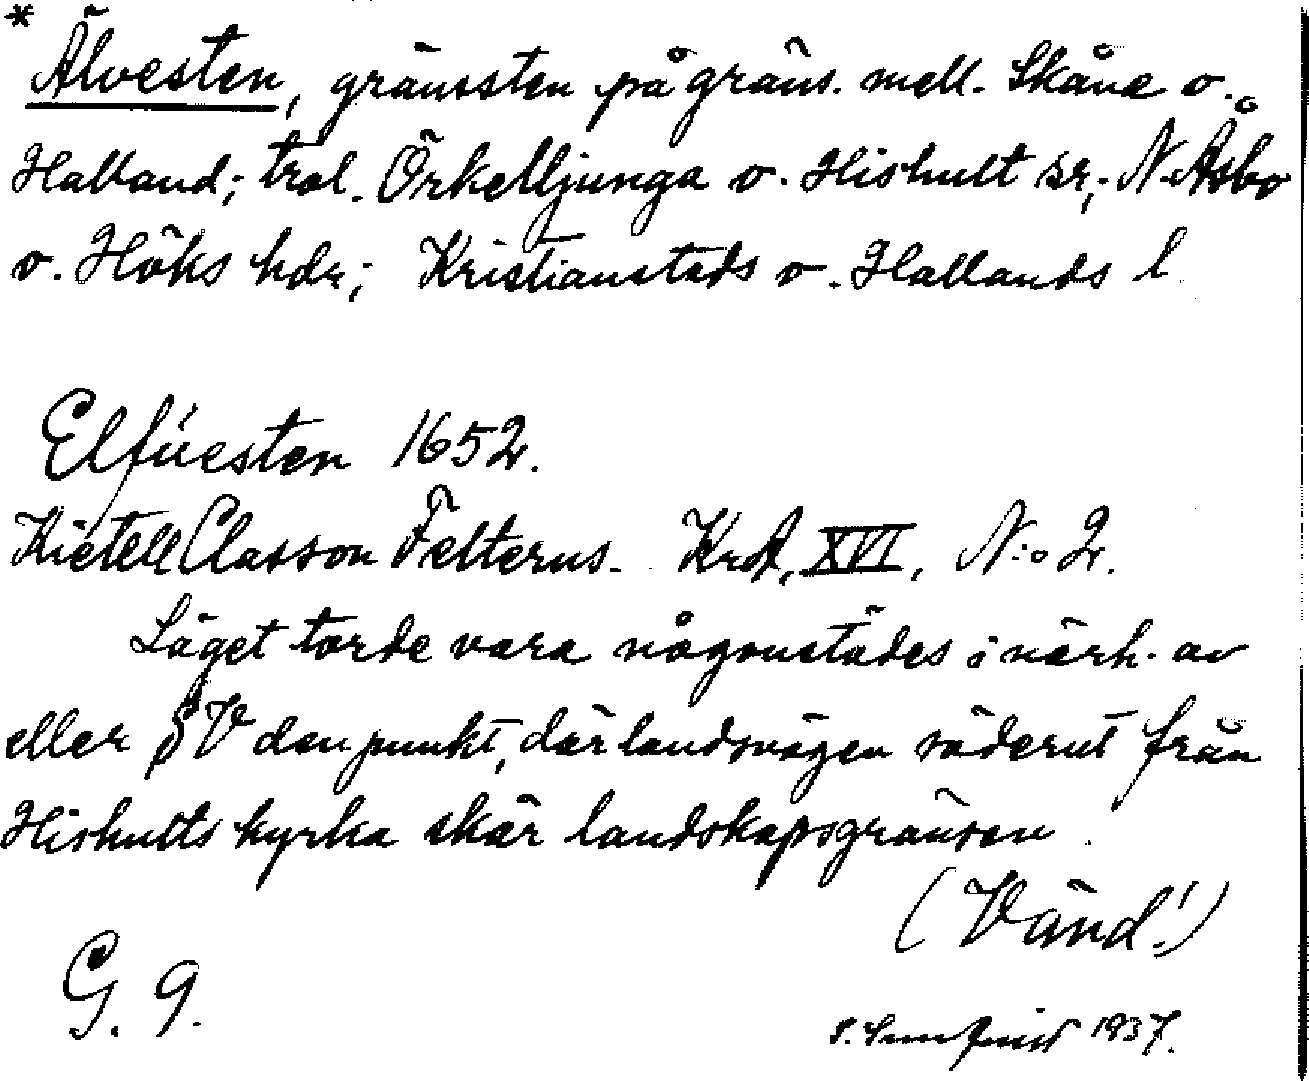 * Älvesten, gränssten på gräns. mell. Skåne o.
Halland; trol. Örkelljunga o. Hishult sr; N. Åsbo
o. Höks hdr; Kristianstads o. Hallands l
Elfüesten 1652.
Kietell Classon Felterus. KrA, XVI, N:o 2.
Läget torde vara någonstädes i närh. av
eller SV den punkt, där landsvägen söderut från
Hishults kyrka skär landskapsgränsen.
(Vänd!)
G. 9.
S. 1937.